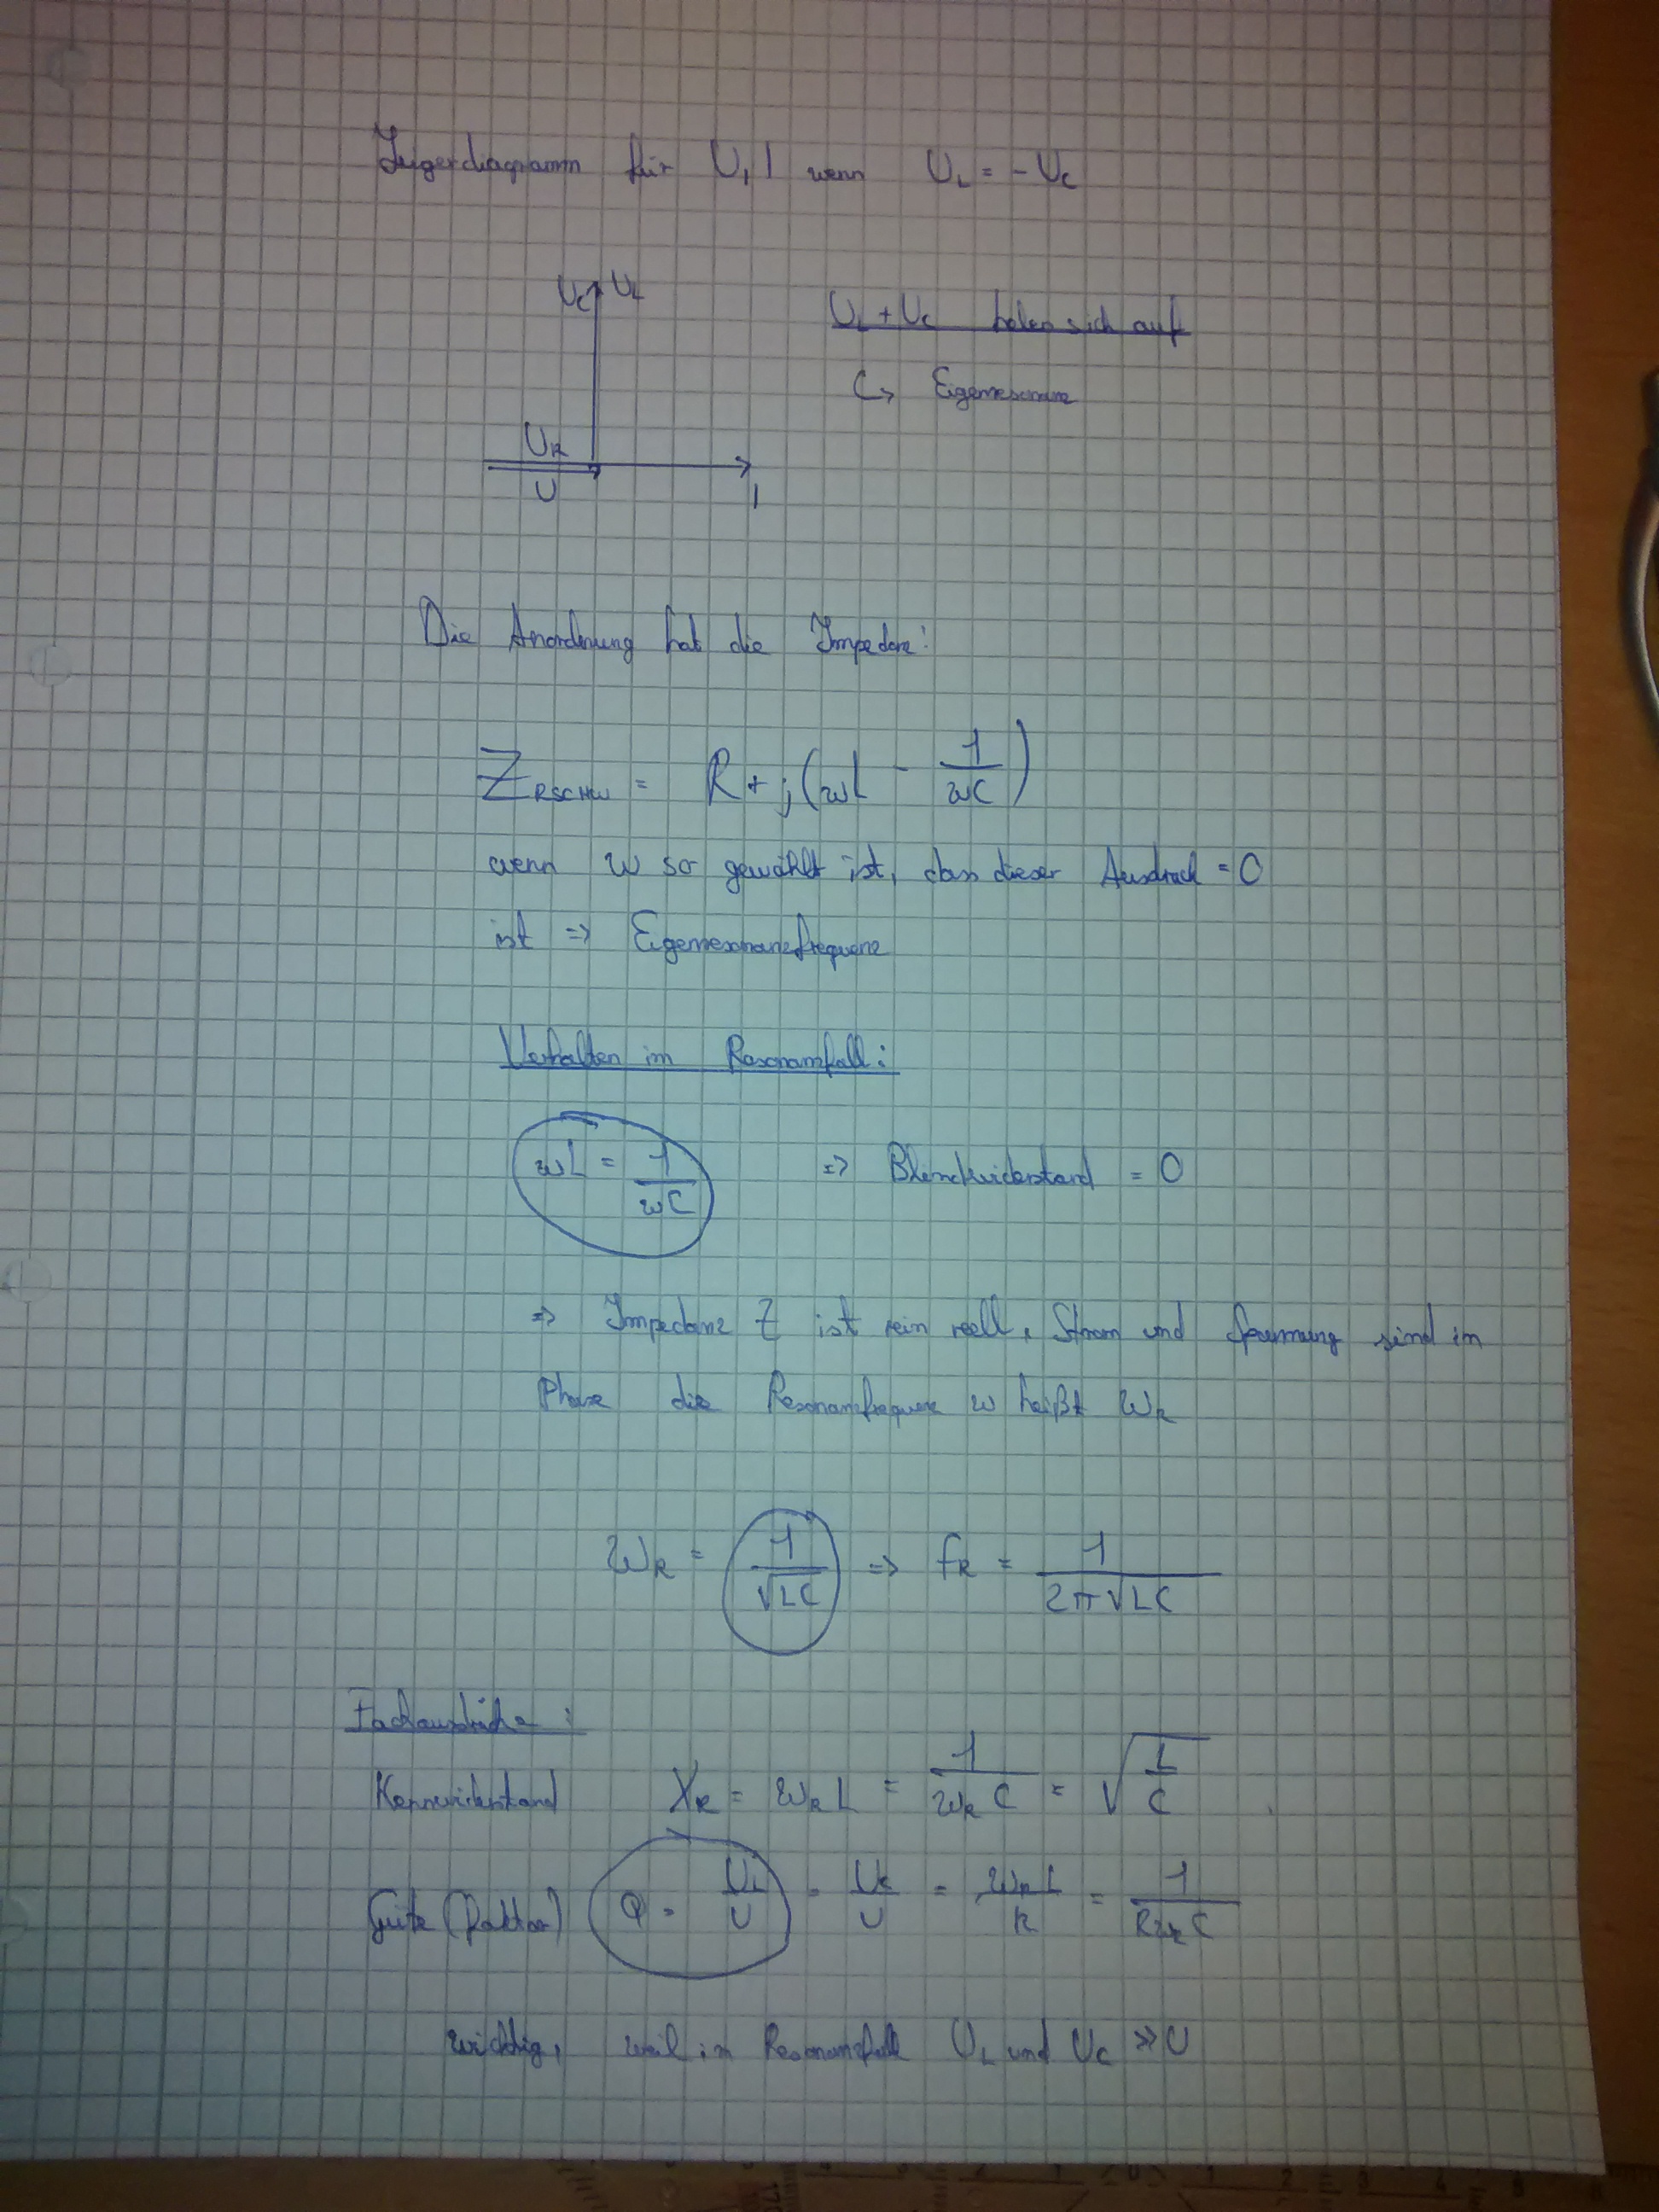 Zeigerdiagramm für U, I wenn U_L = - U_C
U_C U_L
U_L + U_C heben sich auf
↳ Eigenresonanz
U_R
U
I
Die Anordnung hat die Impedanz:
Z_RSCHW = R + j(ωL - 1/(ωC))
wenn ω so gewählt ist, dass dieser Ausdruck = 0
ist => Eigenresonanzfrequenz
Verhalten im Resonanzfall:
ωL = 1/(ωC) => Blindwiderstand = 0
=> Impedanz Z ist rein reell, Strom und Spannung sind in
Phase die Resonanzfrequenz ω heißt ω_R
ω_R = 1/√(LC) => f_R = 1/(2π√(LC))
Fachausdrücke:
Kennwiderstand X_R = ω_R L = 1/(ω_R C) = √(L/C)
Güte (Faktor) Q = U_L/U = U_C/U = ω_R L/R = 1/(R ω_R C)
wichtig, weil im Resonanzfall U_L und U_C >> U